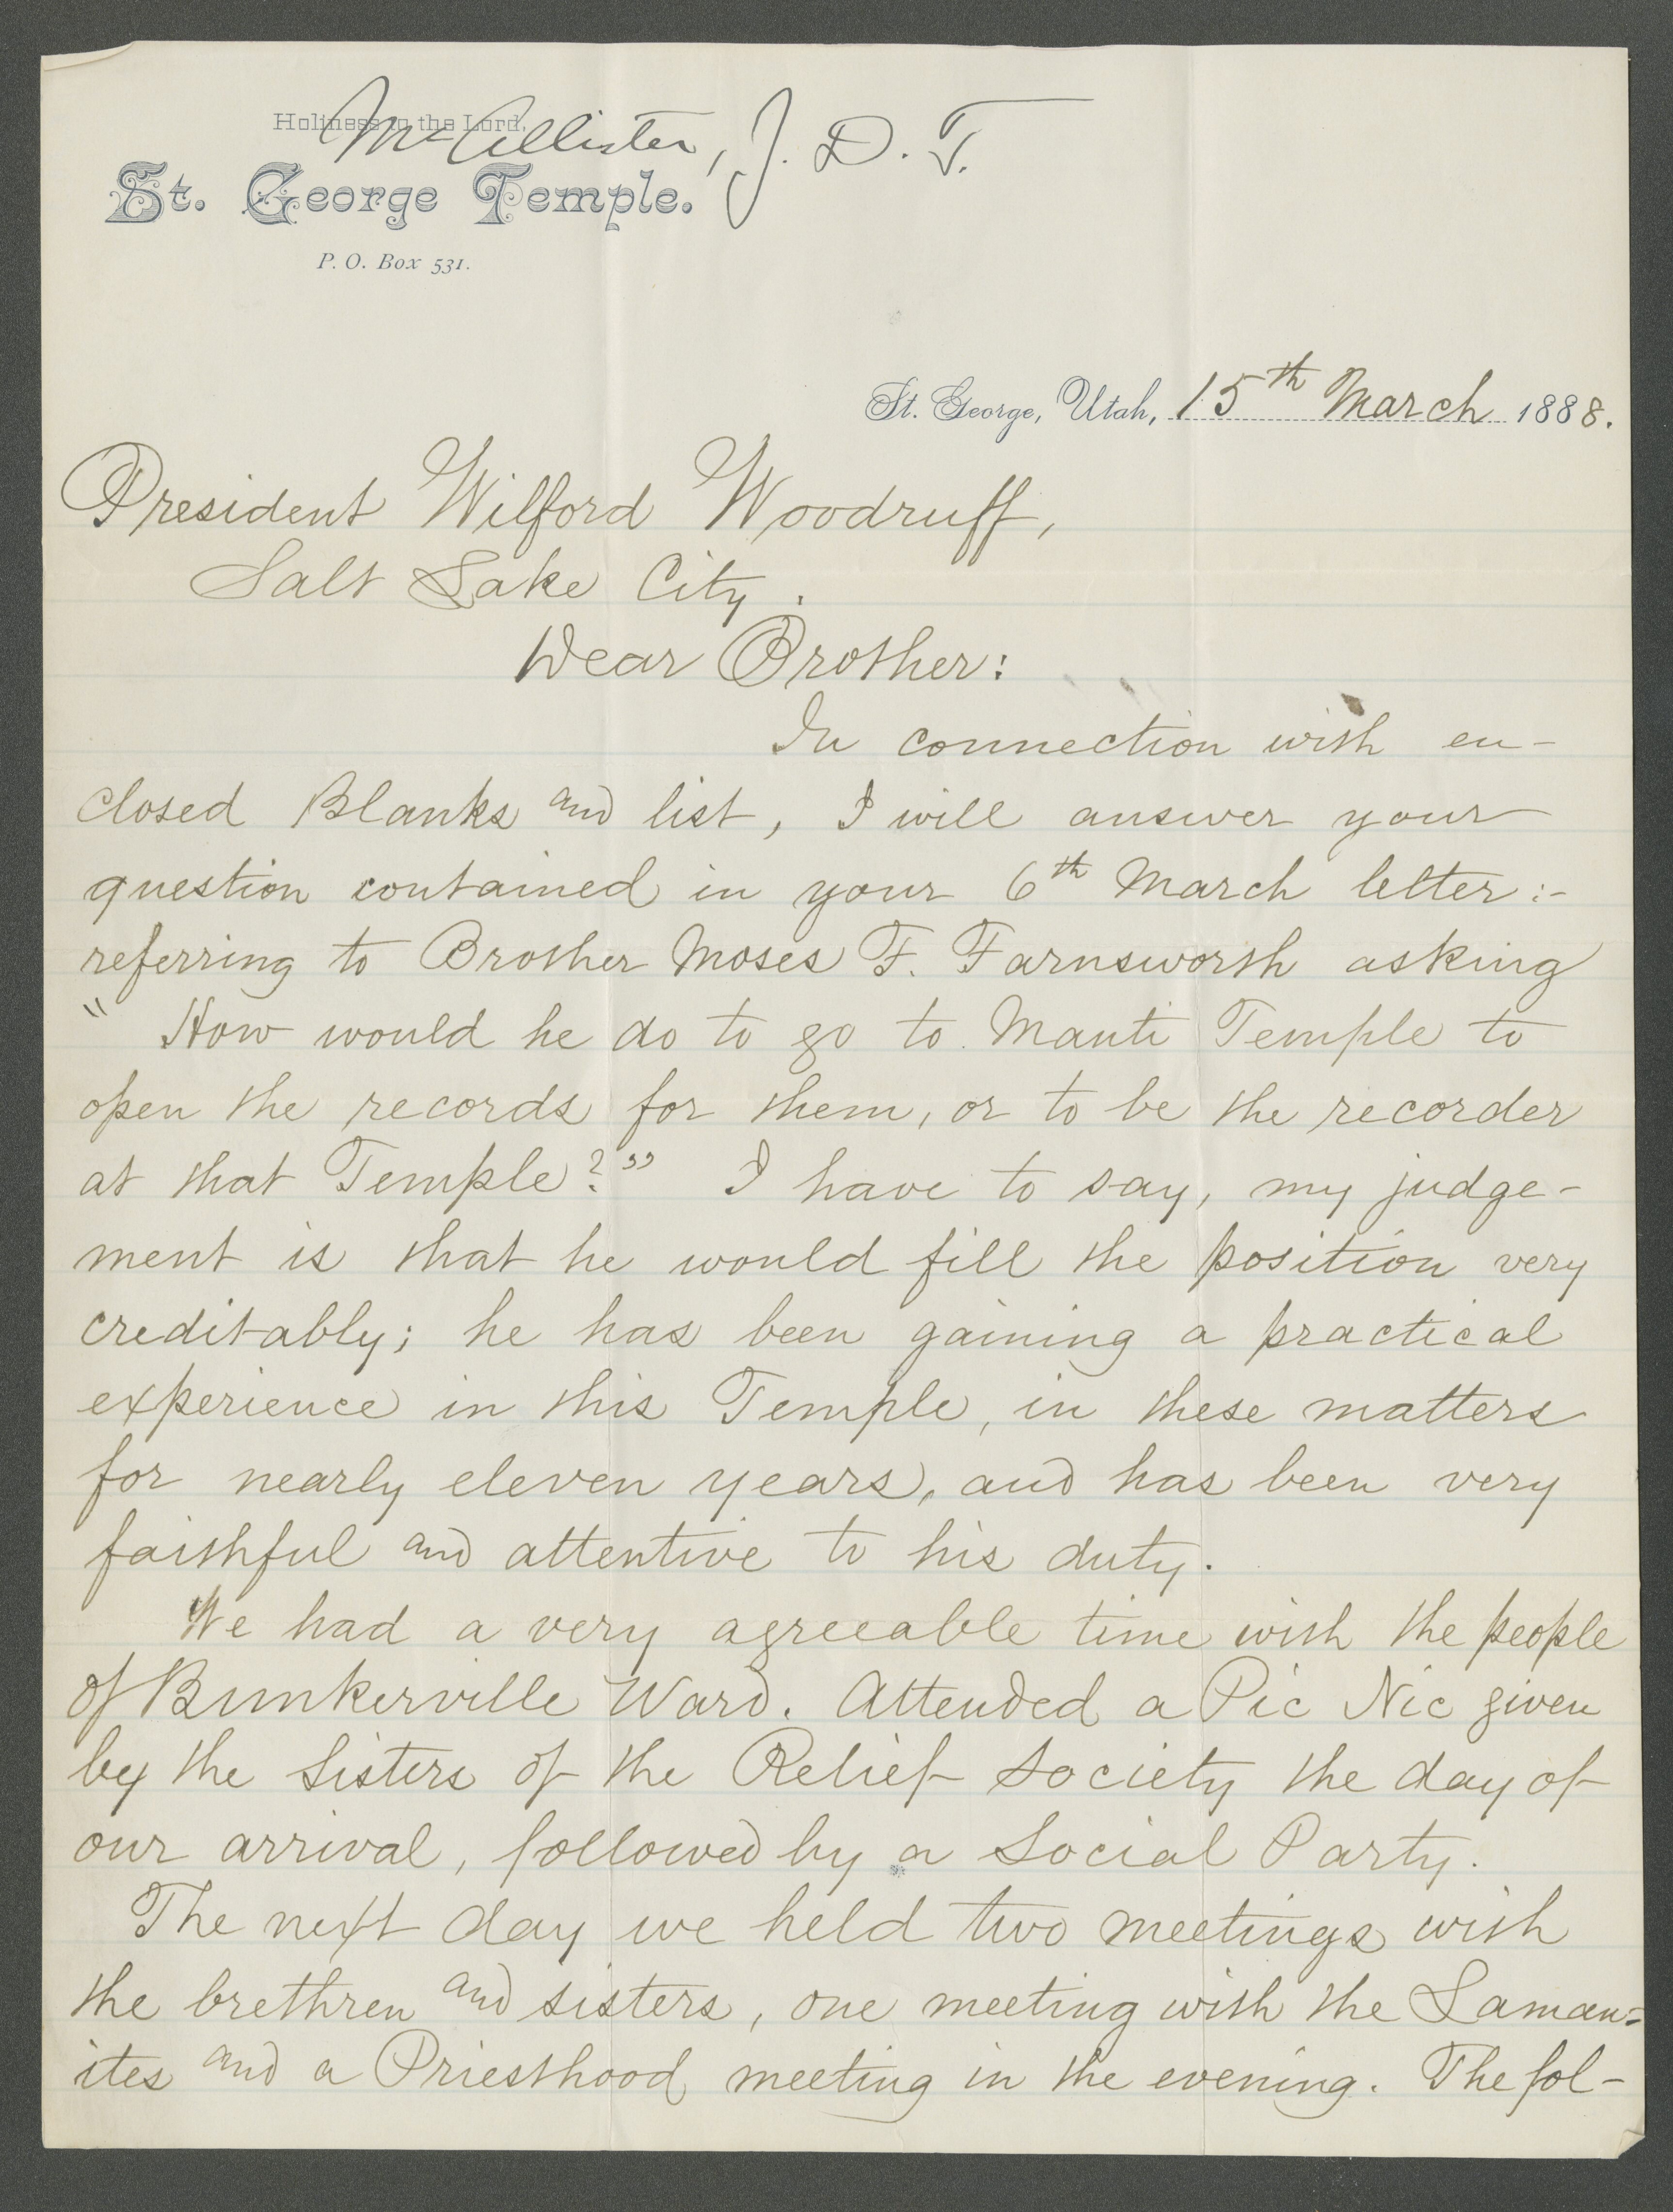 Holiness to the Lord.
McAllister, J. D. T.
St. George Temple.
P. O. Box 531.
St. George, Utah, 15th March 1888.
President Wilford Woodruff,
Salt Lake City.
Dear Brother:
In connection with en-
closed Blanks and list, I will answer your
question contained in your 6th March letter:-
referring to Brother Moses F. Farnsworth asking
" How would he do to go to Manti Temple to
open the records for them, or to be the recorder
at that Temple?" I have to say, my judge-
ment is that he would fill the position very
creditably; he has been gaining a practical
experience in this Temple, in these matters
for nearly eleven years, and has been very
faithful and attentive to his duty.
We had a very agreeable time with the people
of Bunkerville Ward. Attended a Pic Nic given
by the Sisters of the Relief Society the day of
our arrival, followed by a Social Party.
The next day we held two meetings with
the brethren and sisters, one meeting with the Laman=
ites and a Priesthood meeting in the evening. The fol-